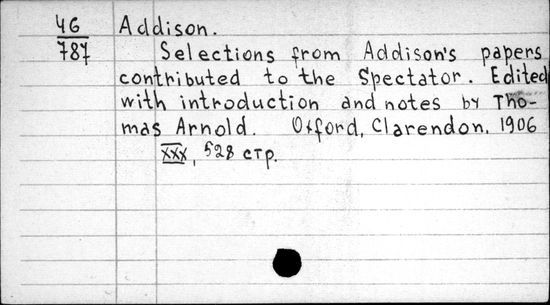 46 Addison.
787 Selections from Addison's papers
contributed to the Spectator. Edited
with introduction and notes by Tho-
mas Arnold. Oxford, Clarendon. 1906
XXX, 528 стр.